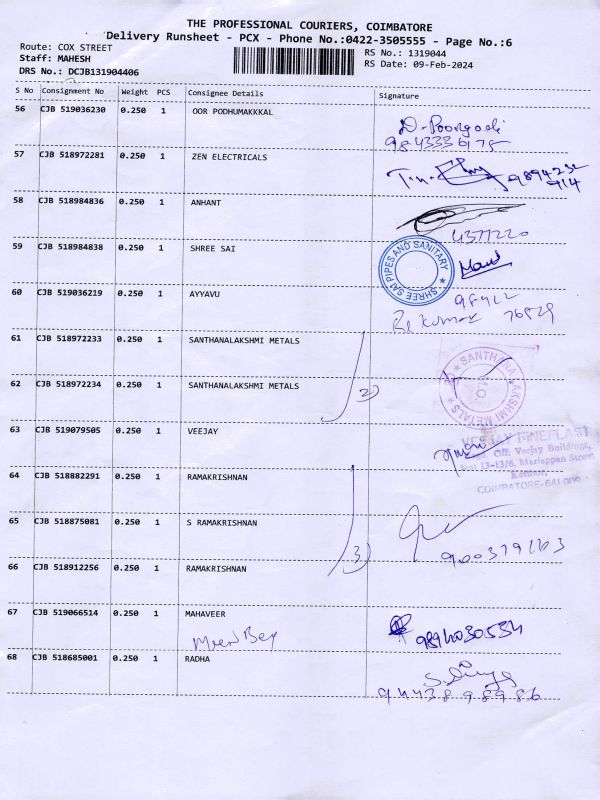 THE PROFESSIONAL COURIERS, COIMBATORE
Delivery Runsheet - PCX - Phone No.:0422-3505555 - Page No.:6
Route: COX STREET RS No.: 1319044
Staff: MAHESH RS Date: 09-Feb-2024
DRS No.: DCJB131904406
S No Consignment No Weight PCS Consignee Details Signature
56 CJB 519036230 0.250 1 OOR PODHUMAKKKAL
D-Poongodi
9843336175
57 CJB 518972281 0.250 1 ZEN ELECTRICALS
9894232
914
58 CJB 518984836 0.250 1 ANHANT
4377220
59 CJB 518984838 0.250 1 SHREE SAI
SHREE SAI PIPES AND SANITARY
60 CJB 519036219 0.250 1 AYYAVU
kumar 76529
61 CJB 518972233 0.250 1 SANTHANALAKSHMI METALS
62 CJB 518972234 0.250 1 SANTHANALAKSHMI METALS
2
SANTHANA LAKSHMI METALS
63 CJB 519079505 0.250 1 VEEJAY
VEEJAY FINEPLAST
Off: Veejay Buildings,
13-13/6, Mariappan Street
COIMBATORE-641 009
64 CJB 518882291 0.250 1 RAMAKRISHNAN
65 CJB 518875081 0.250 1 S RAMAKRISHNAN
3
66 CJB 518912256 0.250 1 RAMAKRISHNAN
67 CJB 519066514 0.250 1 MAHAVEER
9894030534
68 CJB 518685001 0.250 1 RADHA
9443898986